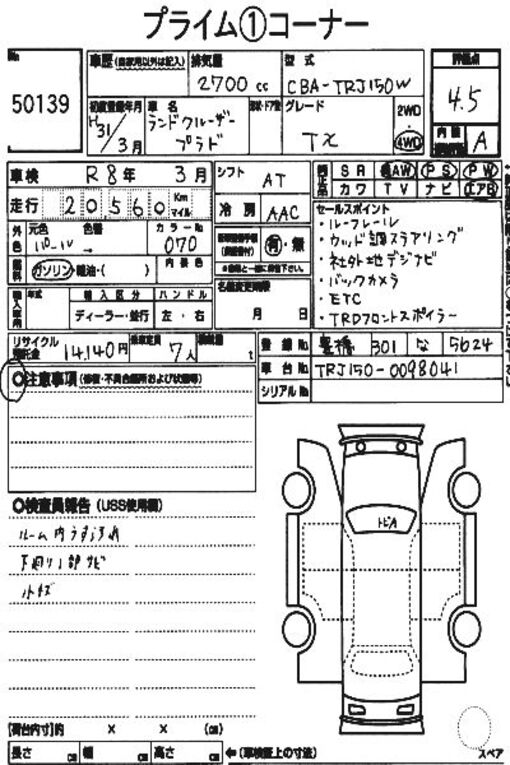 プライム①コーナー
No
50139
車歴 (自家用以外は記入)
排気量
2700 cc
型式
CBA-TRJ150W
評価点
4.5
内装
A
初度登録年月
H31/3月
車名
ランドクルーザー
プラド
形状・ドア数
グレード
TX
2WD
4WD
車検 R8年 3月
走行 20,560 Km マイル
シフト AT
冷房 AAC
外色 元色 色替 カラーNo
パール → 070
燃料 ガソリン・軽油・( ) 内装色
有・無
名義変更期限
月 日
輸入車用 年式 輸入区分 ハンドル
ディーラー・並行 左・右
純正品 SR AW PS PW
カワ TV ナビ エアB
セールスポイント
・ルーフレール
・ウッド調ステアリング
・社外地デジナビ
・バックカメラ
・ETC
・TRDフロントスポイラー
リサイクル預託金 14,140円
乗車定員 7人
積載量 t
登録No 豊橋 301 な 5624
車台No TRJ150-0098041
シリアルNo
〇注意事項 (修復・不具合箇所および状態等)
〇検査員報告 (USS使用欄)
ルーム内うすヨゴレ
下廻り1部サビ
小キズ
トビA
[荷台内寸]約 × × (㎝)
長さ ㎝ 幅 ㎝ 高さ ㎝ ←(車検証上の寸法)
スペア